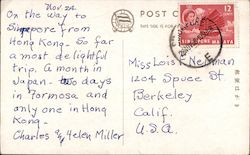 Nov. 22
On the way to
Singapore from
Hong Kong - So far
a most delightful
trip. A month in
Japan - days
in Formosa and
only one in Hong
Kong -
Charles & Helen Miller
POST C
12
CENTS
SINGAPORE MALAYA
Miss Lois Neilman
1204 Spuce St.
Berkeley
Calif.
U.S.A.